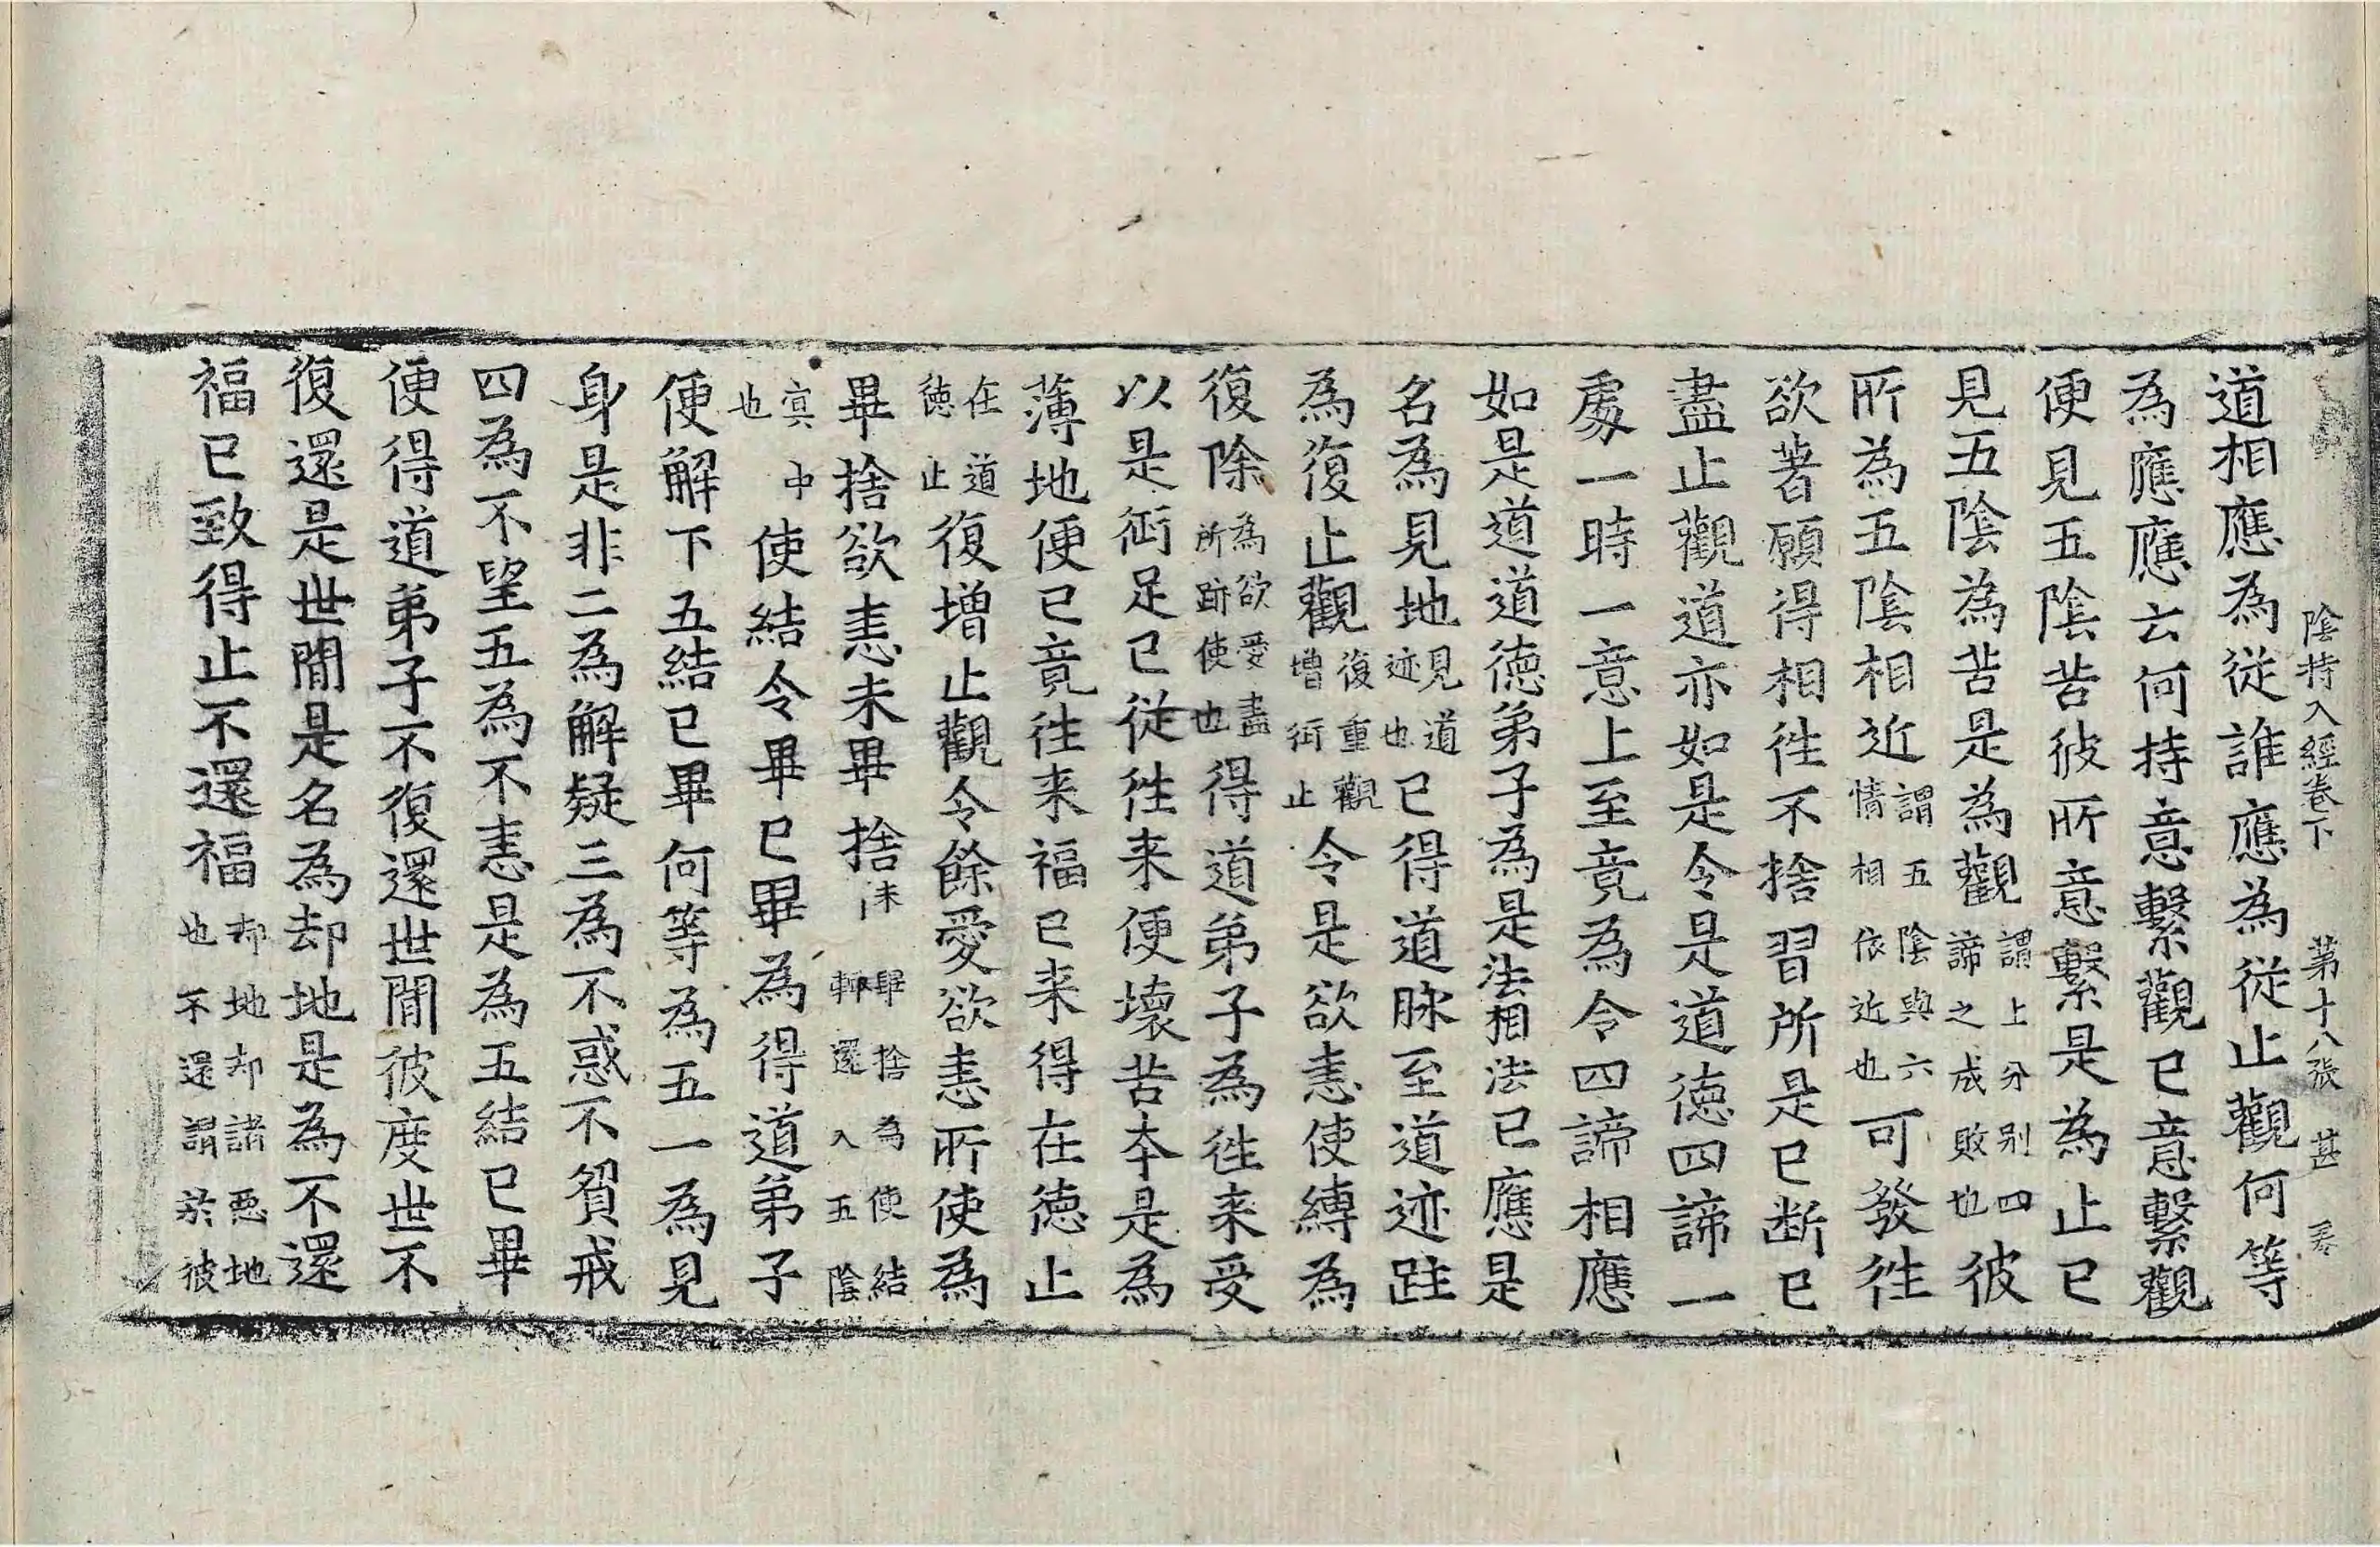 陰持入經卷下　第十八張　甚
道相應為從誰應為從止觀何等
為應應云何持意繫觀已意繫觀
便見五陰苦彼所意繫是為止已
見五陰為苦是為觀謂上分别四諦之成敗也彼
所為五陰相近謂五陰與六情相依近也可發徃
欲著願得相徃不捨習所是已断已
盡止觀道亦如是令是道德四諦一
處一時一意上至竟為令四諦相應
如是道道德弟子為是法相法已應是
名為見地見道迹也已得道脉至道迹跓
為復止觀復重觀增術止令是欲恚使縛為
復除為欲愛盡所跡使也得道弟子為徃来受
以是術足已從徃来便壞苦本是為
薄地便已竟徃来福已来得在德止
在道德止復增止觀令餘愛欲恚所使為
畢捨欲恚未畢捨未畢捨為使結輒還入五陰
寘中也使結令畢已畢為得道弟子
便解下五結已畢何等為五一為見
身是非二為解疑三為不惑不貿戒
四為不望五為不恚是為五結已畢
便得道弟子不復還世間彼度世不
復還是世間是名為却地是為不還
福已致得止不還福却地却諸惡地也不還謂於彼